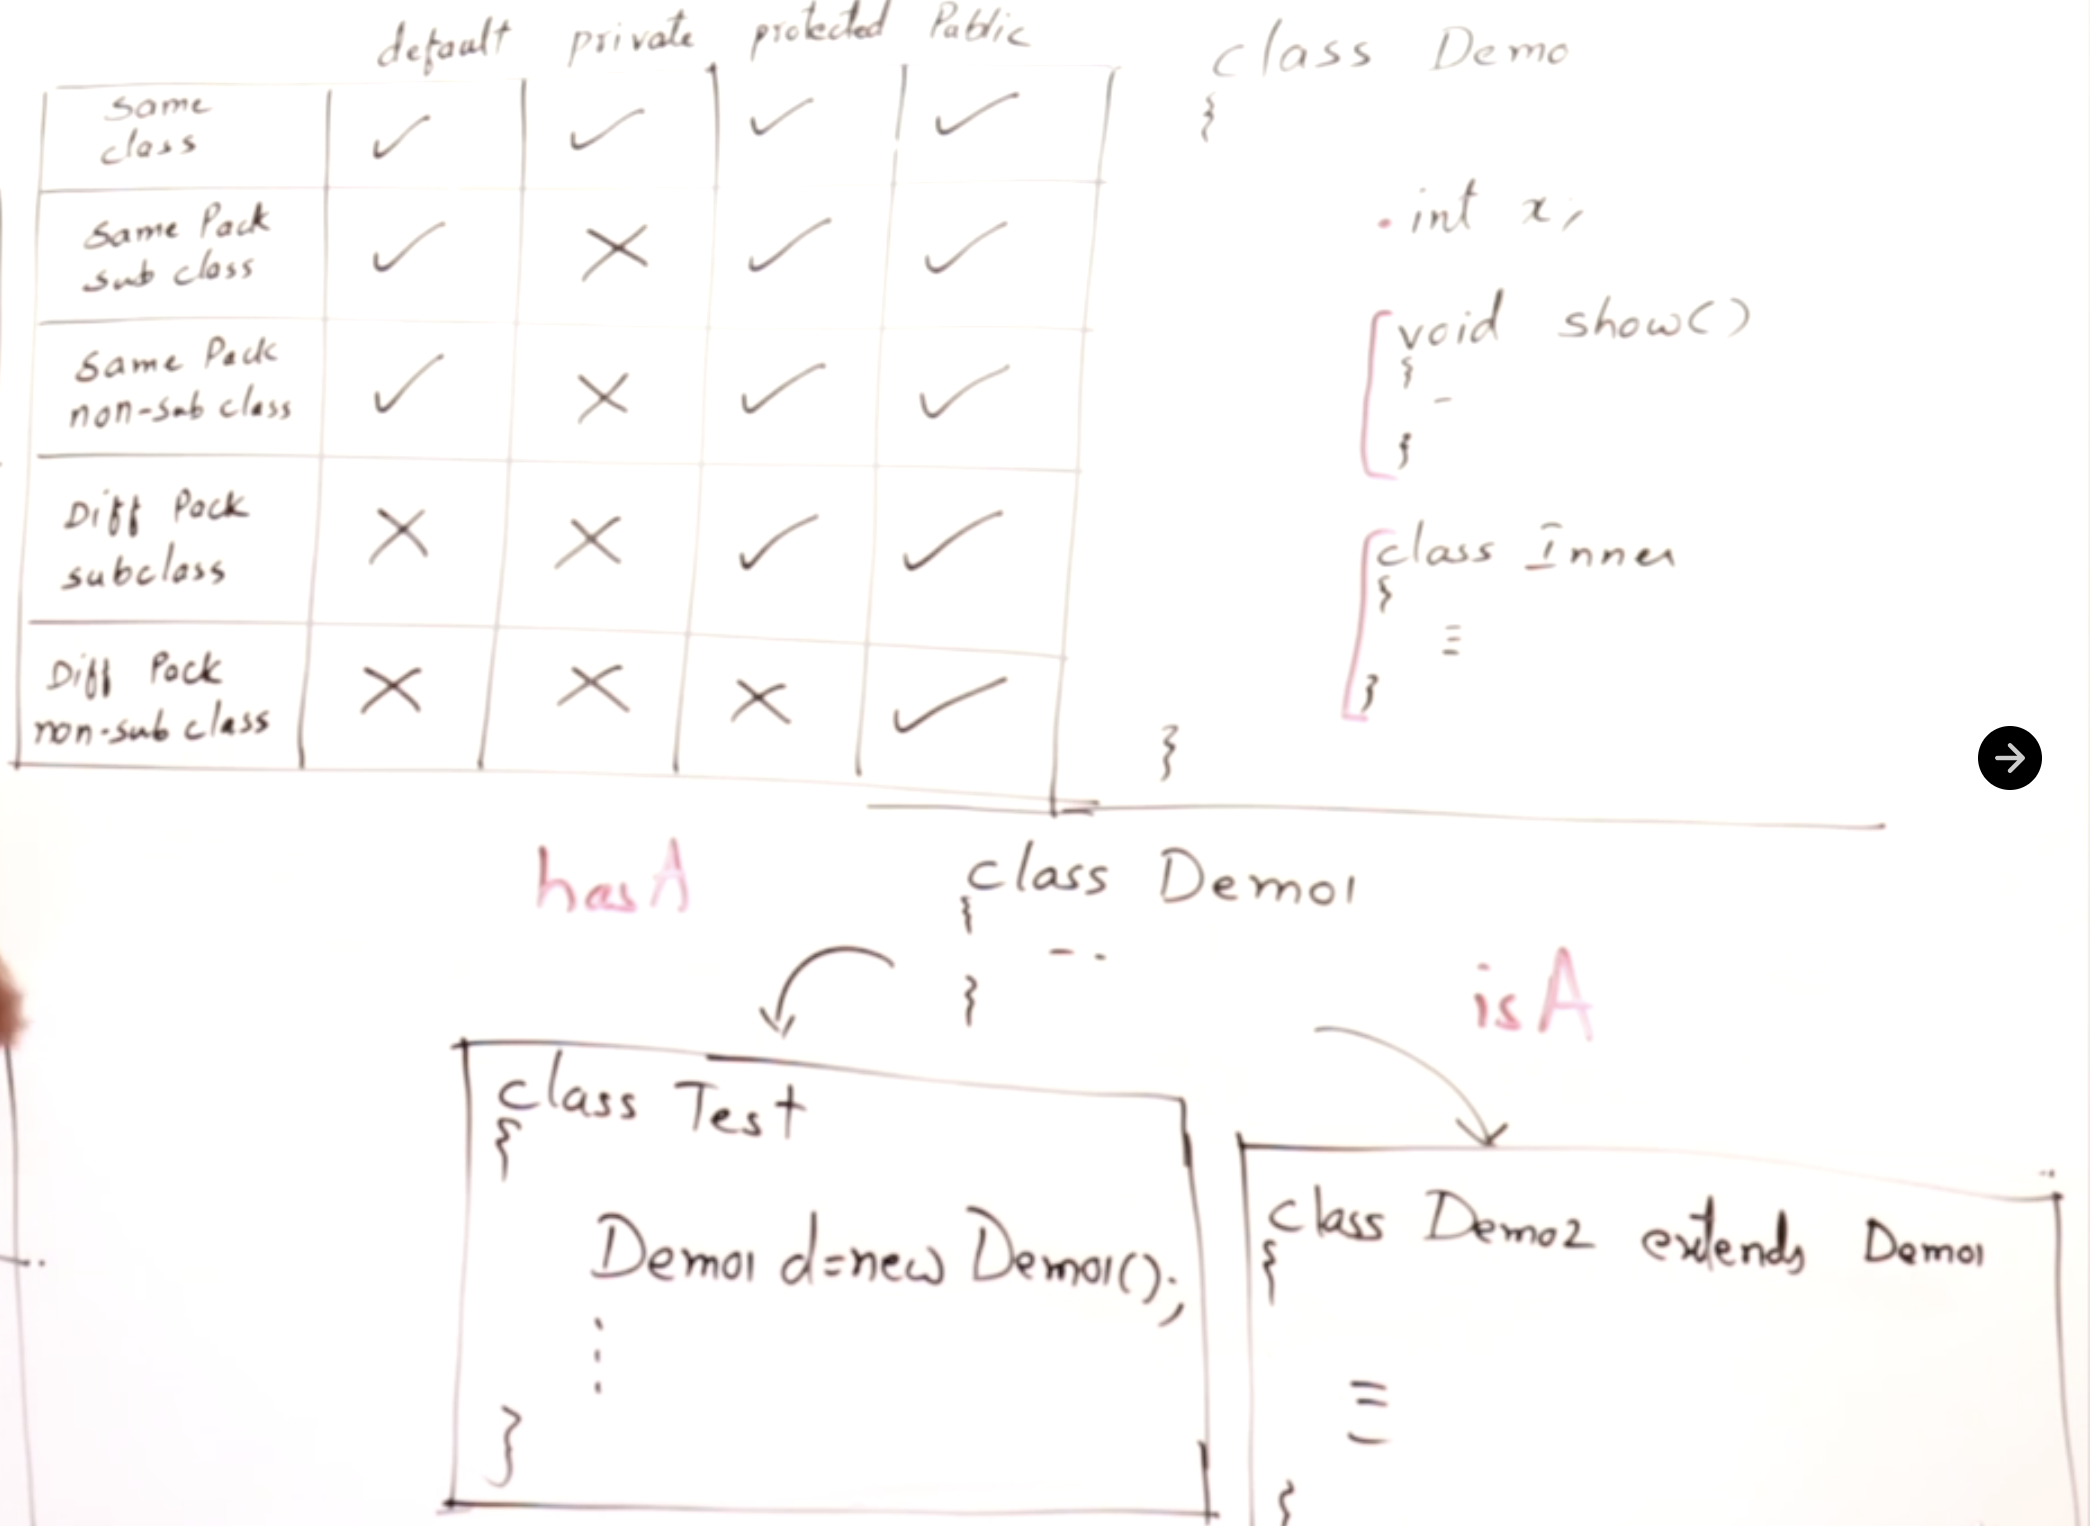 default private protected Public
Same class ✓ ✓ ✓ ✓
Same Pack sub class ✓ ✗ ✓ ✓
Same Pack non-sub class ✓ ✗ ✓ ✓
Diff Pack subclass ✗ ✗ ✓ ✓
Diff Pack non-sub class ✗ ✗ ✗ ✓
class Demo
{
int x;
void show()
{
-
}
class Inner
{
}
}
hasA
class Demo1
{
-- 
}
isA
class Test
{
Demo1 d=new Demo1();
}
class Demo2 extends Demo1
{
}